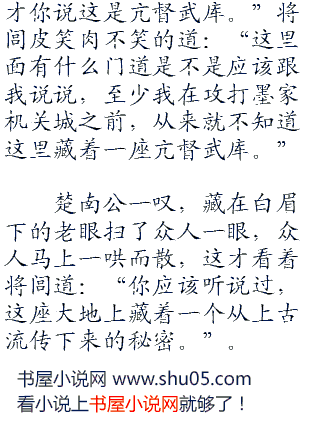 才你说这是亢督武库。”将
闾皮笑肉不笑的道：“这里
面有什么门道是不是应该跟
我说说，至少我在攻打墨家
机关城之前，从来就不知道
这里藏着一座亢督武库。”
楚南公一叹，藏在白眉
下的老眼扫了众人一眼，众
人马上一哄而散，这才看着
将闾道：“你应该听说过，
这座大地上藏着一个从上古
流传下来的秘密。”。
书屋小说网 www.shu05.com
看小说上书屋小说网就够了！